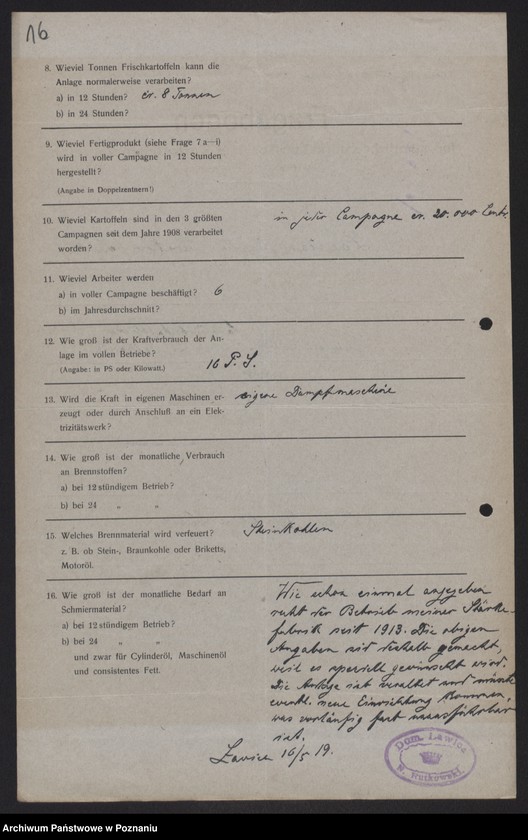 16
8. Wieviel Tonnen Frischkartoffeln kann die
Anlage normalerweise verarbeiten?
a) in 12 Stunden? cr. 8 Tonnen
b) in 24 Stunden?
9. Wieviel Fertigprodukt (siehe Frage 7 a—i)
wird in voller Campagne in 12 Stunden
hergestellt?
(Angabe in Doppelzentnern!)
10. Wieviel Kartoffeln sind in den 3 größten
Campagnen seit dem Jahre 1908 verarbeitet
worden?
in jeder Campagne cr. 20.000 Centr.
11. Wieviel Arbeiter werden
a) in voller Campagne beschäftigt? 6
b) im Jahresdurchschnitt?
12. Wie groß ist der Kraftverbrauch der An-
lage im vollen Betriebe?
(Angabe: in PS oder Kilowatt.) 16 P.S.
13. Wird die Kraft in eigenen Maschinen er-
zeugt oder durch Anschluß an ein Elek-
trizitätswerk?
eigene Dampfmaschine
14. Wie groß ist der monatliche Verbrauch
an Brennstoffen?
a) bei 12 stündigem Betrieb?
b) bei 24 „ „
15. Welches Brennmaterial wird verfeuert? Steinkohlen
z. B. ob Stein-, Braunkohle oder Briketts,
Motoröl.
16. Wie groß ist der monatliche Bedarf an
Schmiermaterial?
a) bei 12 stündigem Betrieb?
b) bei 24 „ „
und zwar für Cylinderöl, Maschinenöl
und consistentes Fett.
Wie schon einmal angegeben
ruht der Betrieb meiner Stärke-
fabrik seit 1913. Die obigen
Angaben sind deshalb gemacht,
weil es speziell gewünscht wird.
Die Anlage ist veraltet und müsste
eventl. neue Einrichtung kommen,
was vorläufig fast unausführbar
ist.
Ławica 16/5 19.
Dom. Ławica
N. Rutkowski
Archiwum Państwowe w Poznaniu